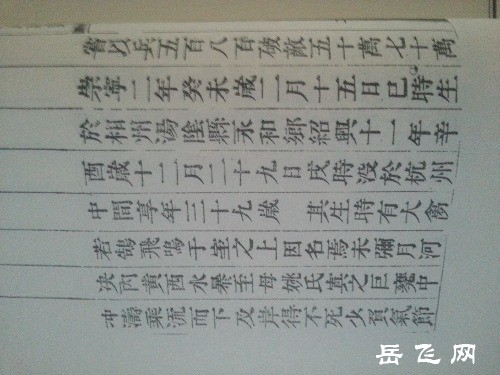 嘗以兵五百八百破敵五十萬七十萬
崇寧二年癸未歲二月十五日巳時生
於相州湯陰縣永和鄉紹興十一年辛
酉歲十二月二十九日戌時没於杭州
中間享年三十九歲　其生時有大禽
若鵠飛鳴于室之上因名焉未彌月河
决內黃西水暴至母姚氏寘之巨甕中
冲濤乘流而下及岸得不死少負氣節
岳飞网